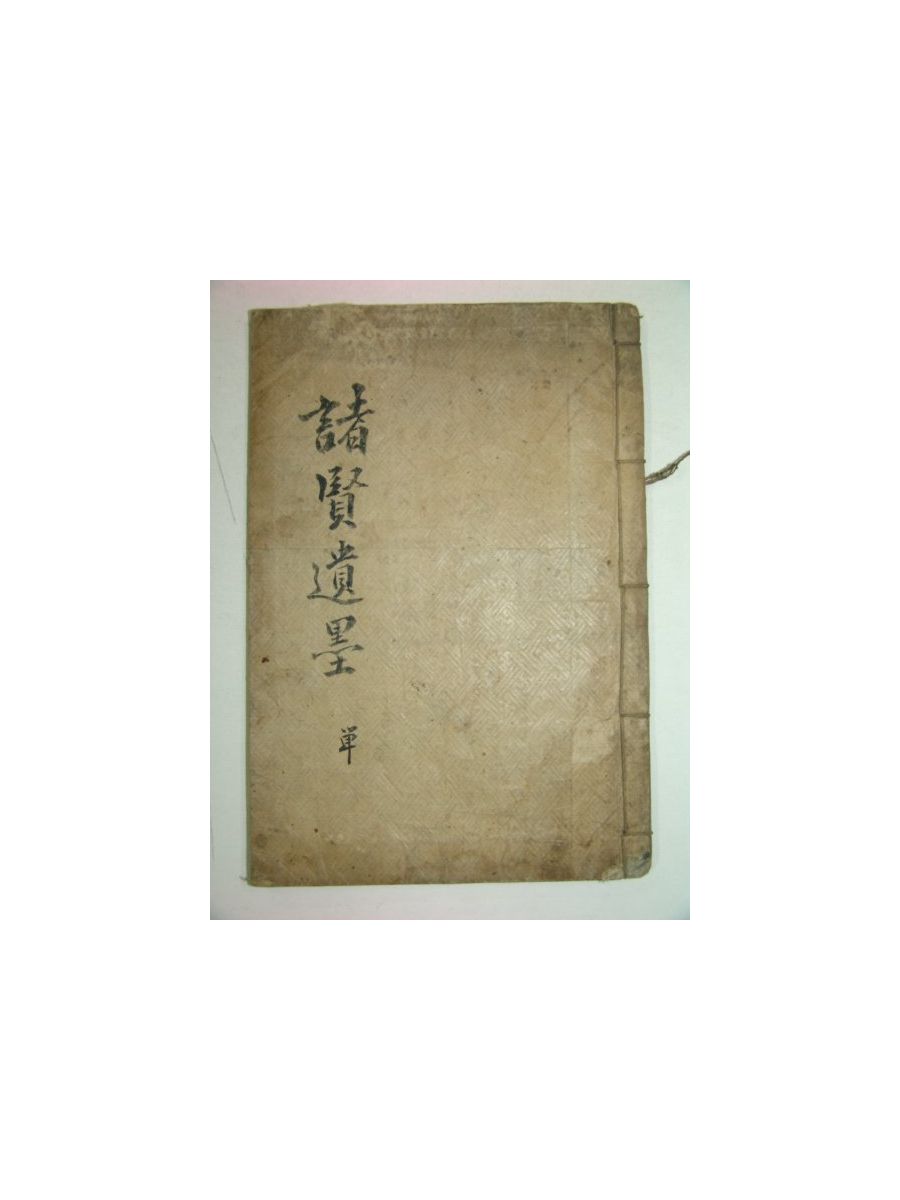 諸賢遺墨
単